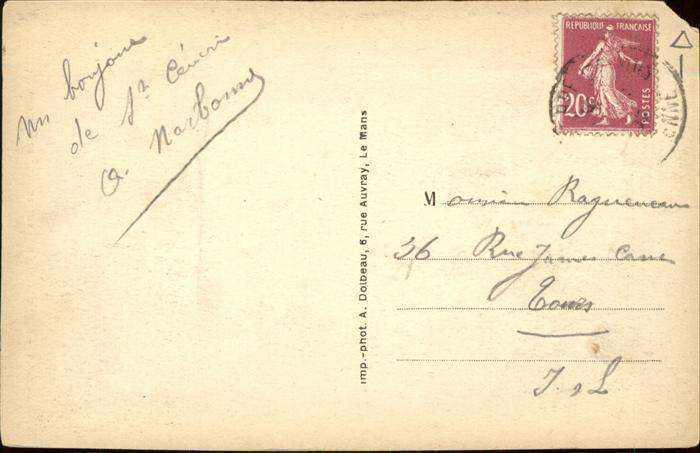 un bonjour
de St Céneri
A. Narbonne
RÉPUBLIQUE FRANÇAISE
20c
POSTES
Imp.-phot. A. Dolbeau, 5, rue Auvray, Le Mans
Monsieur Ragueneau
36 Rue James Cane
Tours
I & L